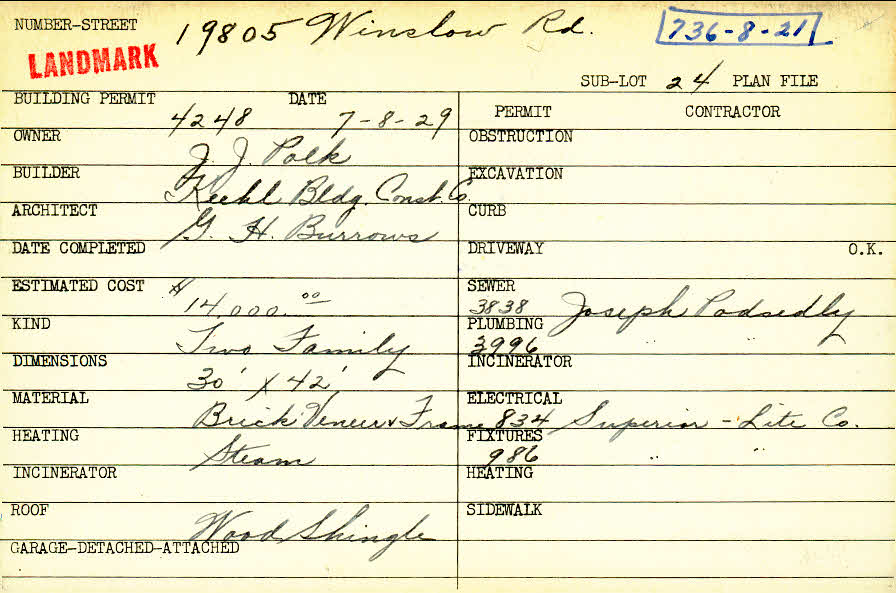 NUMBER-STREET 19805 Winslow Rd. 736-8-21
LANDMARK
SUB-LOT 24 PLAN FILE
BUILDING PERMIT 4248 DATE 7-8-29
PERMIT CONTRACTOR
OWNER J. J. Polk
OBSTRUCTION
BUILDER Bldg. Const. Co.
EXCAVATION
ARCHITECT G. H. Burrows
CURB
DATE COMPLETED
DRIVEWAY O.K.
ESTIMATED COST $14,000.00
SEWER 3838 Joseph Podsedly
KIND Two Family
PLUMBING 3996 " "
DIMENSIONS 30' x 42'
INCINERATOR
MATERIAL Brick Veneer & Frame
ELECTRICAL 834 Superior-Lite Co.
HEATING Steam
FIXTURES 986 " "
INCINERATOR
HEATING
ROOF Wood Shingle
SIDEWALK
GARAGE-DETACHED-ATTACHED